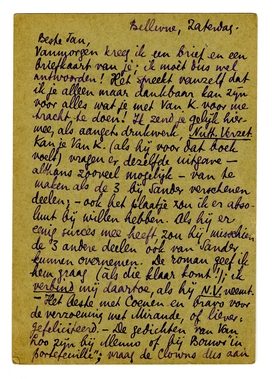 Bellevue, Zaterdag.
Beste Jan,
Vanmorgen kreeg ik een brief en een
briefkaart van je; ik moèt dus wel
antwoorden! Het spreekt vanzelf dat
ik je alleen maar dankbaar kan zijn
voor alles wat je met Van K. voor me
tracht te doen! Ik zend je gelijk hier-
mee, als aanget. drukwerk, Nutt. Verzet.
Kan je Van K. (als hij voor dat boek
voelt) vragen er dezelfde uitgave —
althans zooveel mogelijk — van te
maken als de 3 bij Sander verschenen
deelen; — ook het plaatje zou ik er abso-
luut bij willen hebben. Als hij er
eenig succes mee heeft zou hij misschien
de 3 andere deelen ook van Sander
kunnen overnemen. De roman geef ik
hem graag (àls die klaar komt!); ik
verbind mij daartoe, als hij N.V. neemt.
— Het beste met Coenen en bravo voor
de verzoening met Mirande, of liever:
gefeliciteerd. — De gedichten van Van
Loo zijn bij Menno of bij Bouws "in
portefeuille"; vraag de Clowns dus aan